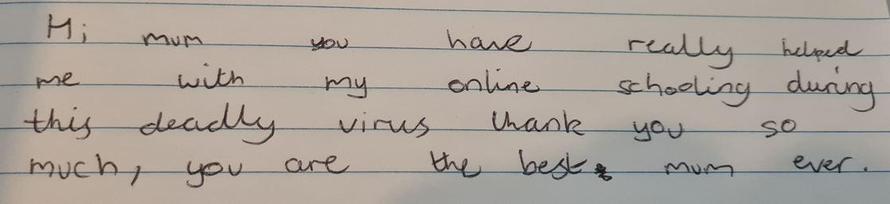 Hi mum you have really helped
me with my online schooling during
this deadly virus thank you so
much, you are the best mum ever.